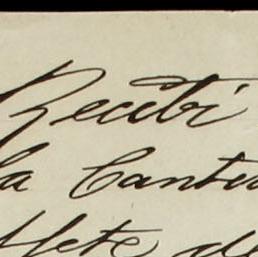 Recibi
la Canti
flete de